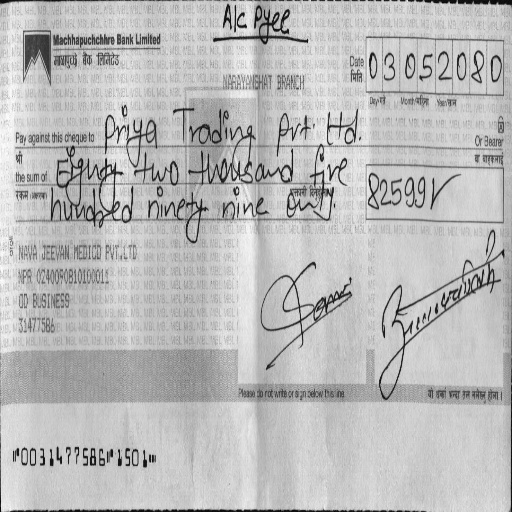 A/c Payee
Machhapuchchhre Bank Limited
माछापुच्छ्रे बैंक लिमिटेड
NARAYANGHAT BRANCH
Date
मिति
03 05 2080
Day/गते Month/महिना Year/साल
Pay against this cheque to Priya Trading Pvt. Ltd.
Or Bearer
श्री
वा वाहकलाई
the sum of Eighty two thousand five
hundred ninety nine only.
82599/
NAVA JEEVAN MEDICO PVT.LTD
NPR 0240090810100011
OD BUSINESS
31477586
Please do not write or sign below this line.
⑈0031477586⑈1501⑈